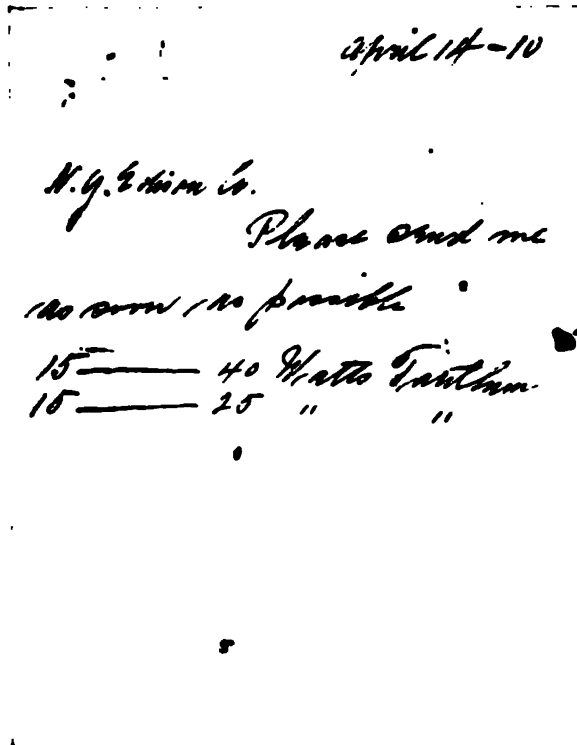 April 14-10
N.Y. Edison Co.
Please send me
as soon as possible
15 —— 40 Watts Tantlum
15 —— 25 " "